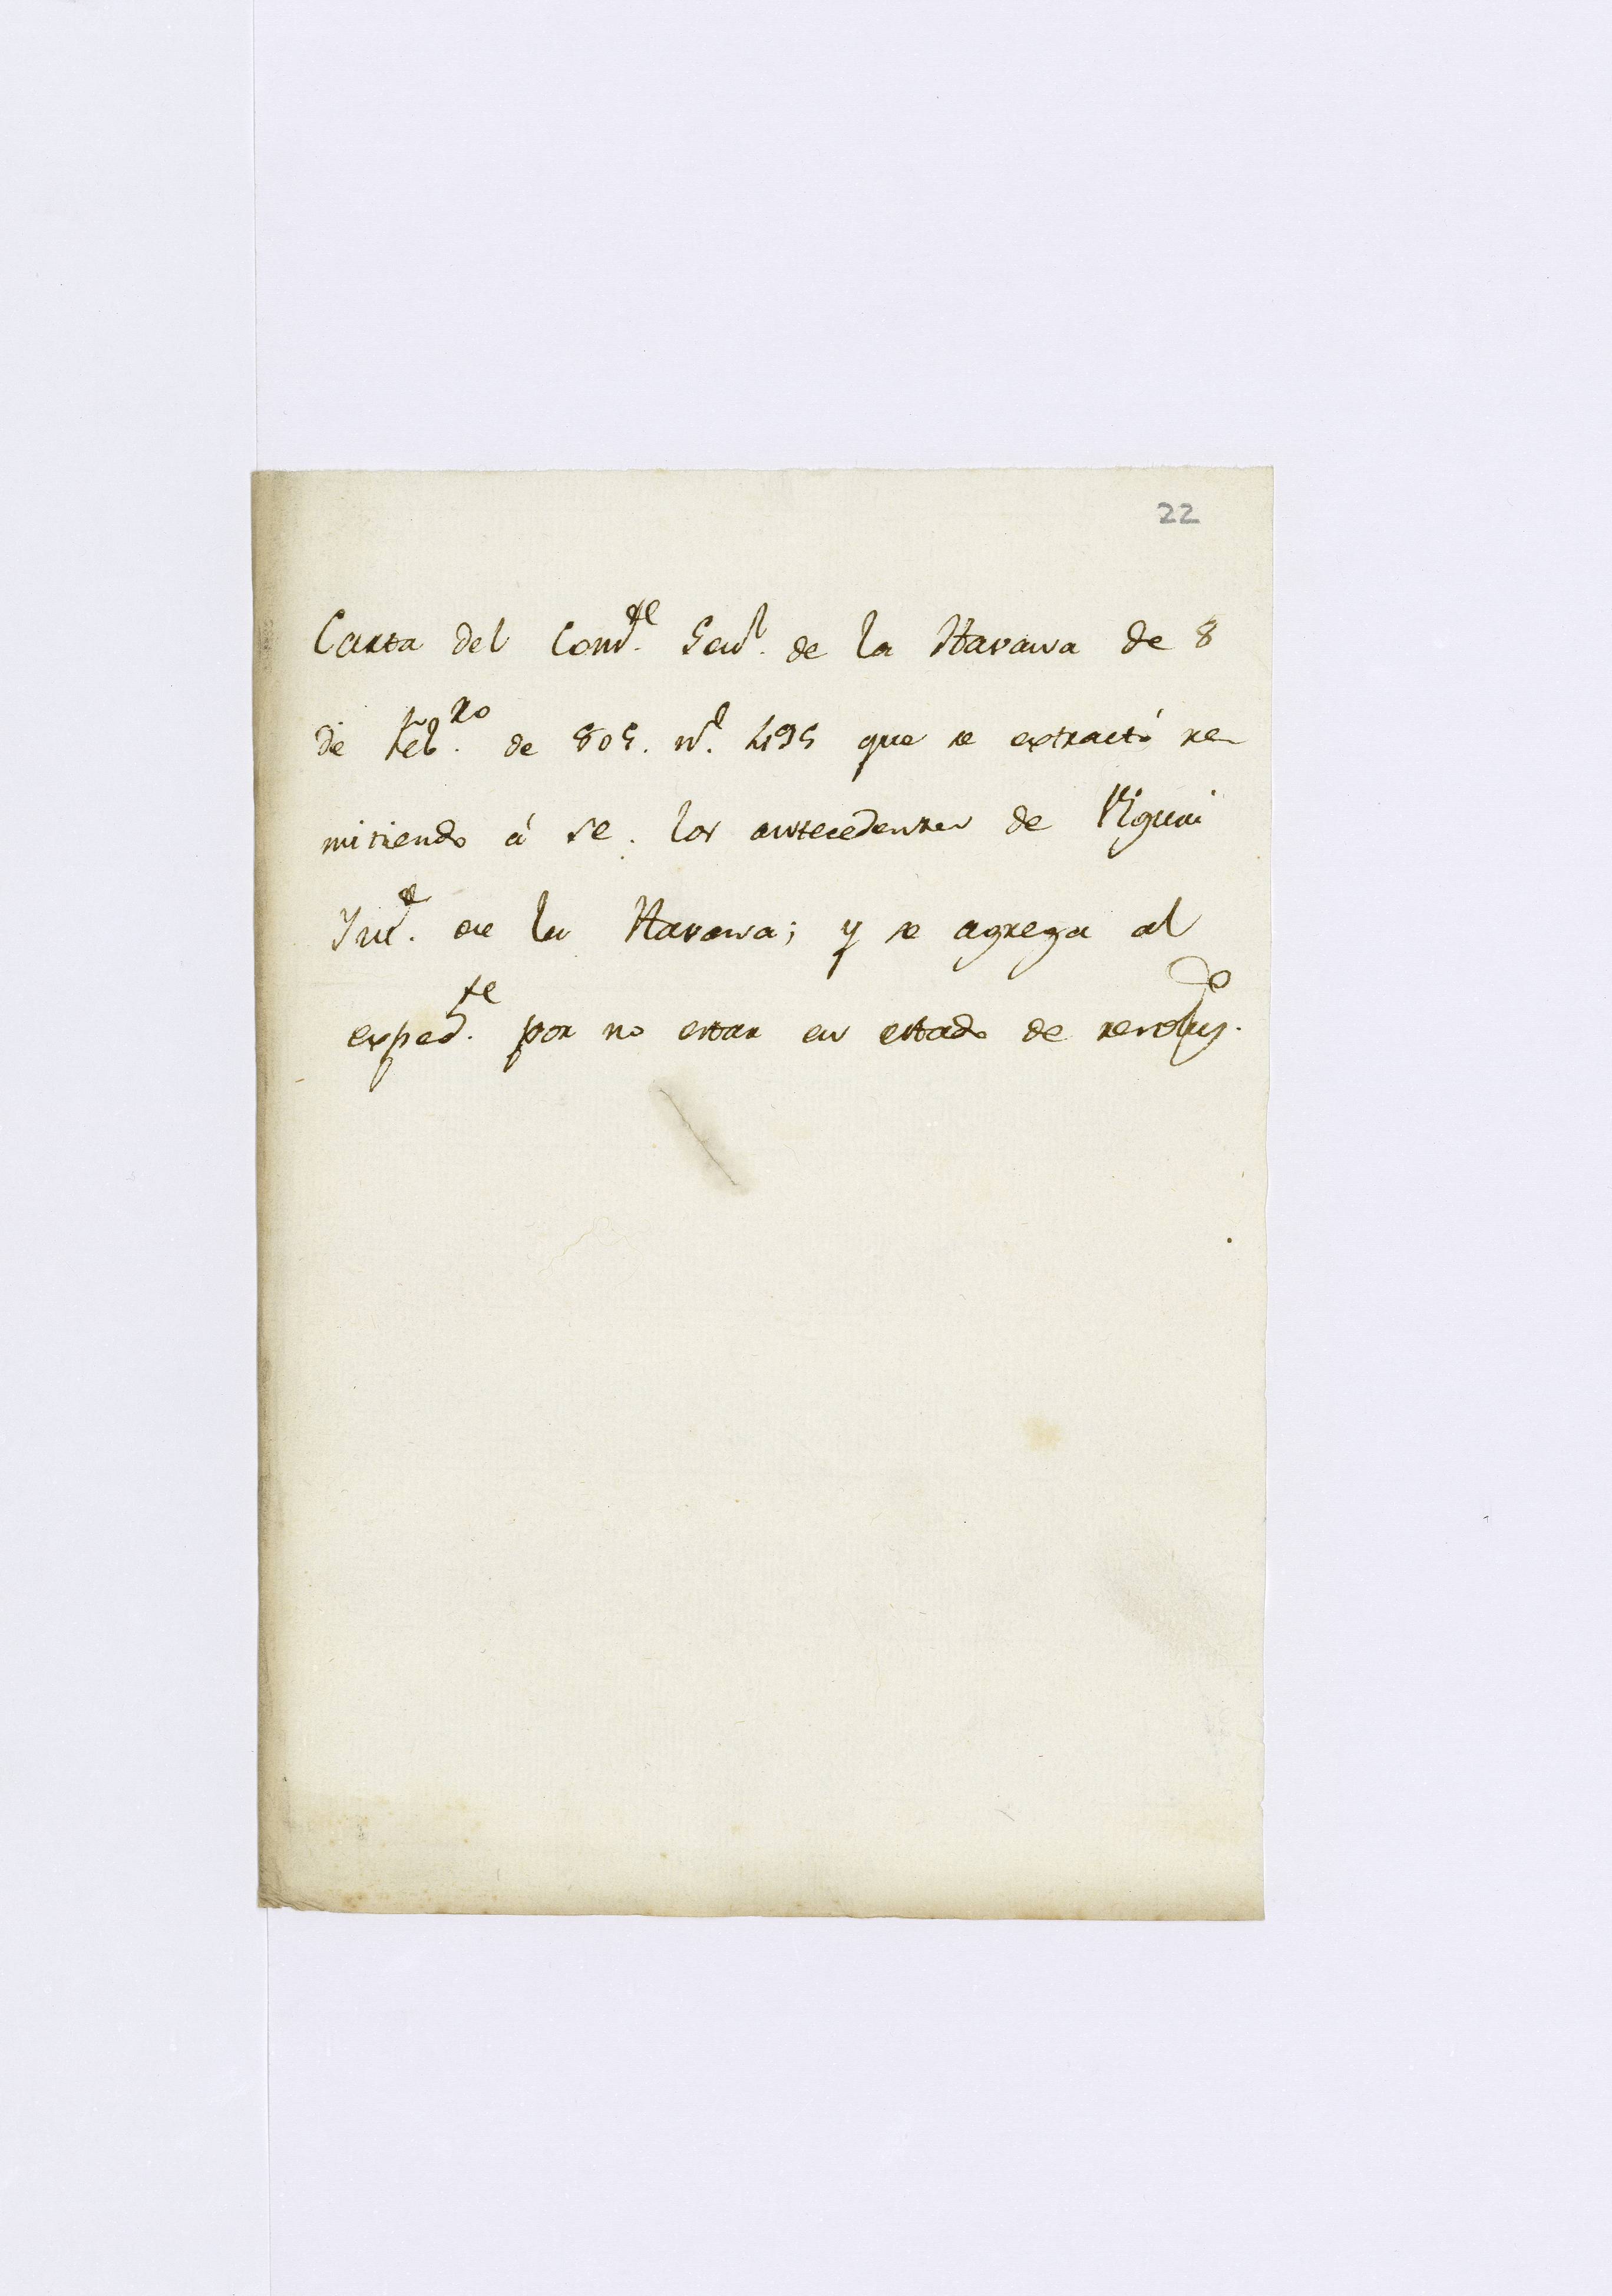 22
Carta del Comte. Genl. de la Havana de 8
de Febro. de 805. nl. 495 que se extractó re
mitiendo á se. los antecedentes de Viguri
Inte. en la Havana; y se agrega al
expedte. por no estar en estado de